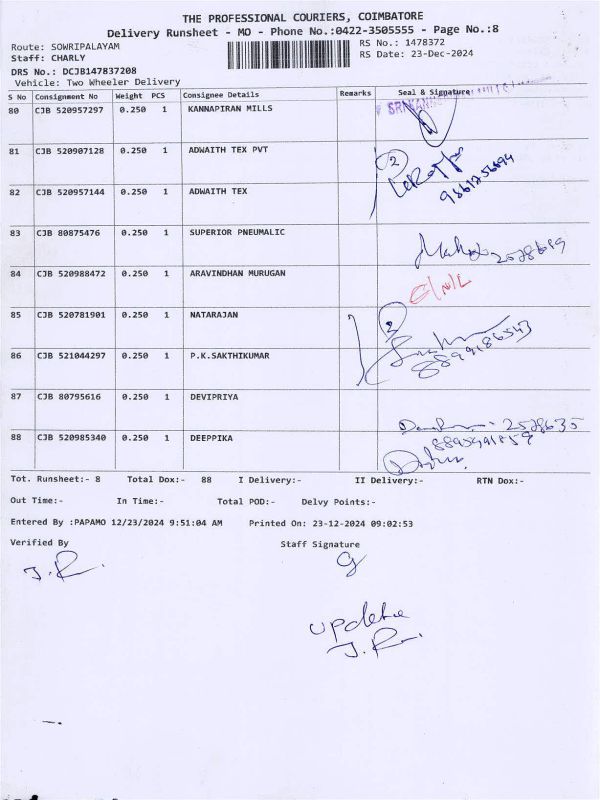 THE PROFESSIONAL COURIERS, COIMBATORE
Delivery Runsheet - MO - Phone No.:0422-3505555 - Page No.:8
Route: SOWRIPALAYAM RS No.: 1478372
Staff: CHARLY RS Date: 23-Dec-2024
DRS No.: DCJB147837208
Vehicle: Two Wheeler Delivery
S No Consignment No Weight PCS Consignee Details Remarks Seal & Signature
80 CJB 520957297 0.250 1 KANNAPIRAN MILLS
81 CJB 520907128 0.250 1 ADWAITH TEX PVT 2
82 CJB 520957144 0.250 1 ADWAITH TEX
83 CJB 80875476 0.250 1 SUPERIOR PNEUMALIC 2578619
84 CJB 520988472 0.250 1 ARAVINDHAN MURUGAN
85 CJB 520781901 0.250 1 NATARAJAN 2
86 CJB 521044297 0.250 1 P.K.SAKTHIKUMAR 8899186543
87 CJB 80795616 0.250 1 DEVIPRIYA 2578635
88 CJB 520985340 0.250 1 DEEPPIKA
Tot. Runsheet:- 8 Total Dox:- 88 I Delivery:- II Delivery:- RTN Dox:-
Out Time:- In Time:- Total POD:- Delvy Points:-
Entered By :PAPAMO 12/23/2024 9:51:04 AM Printed On: 23-12-2024 09:02:53
Verified By Staff Signature
J.R.
update
J.R.